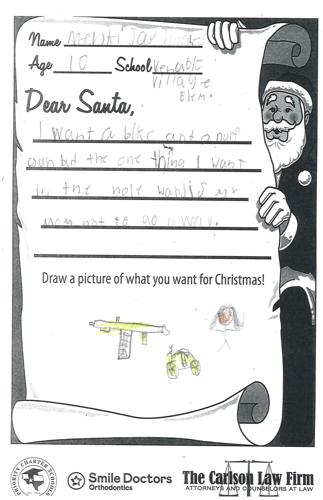 Name
Age 10 School Venable
Village
Elem.
Dear Santa,
I want a bike and a nurf
gun but the one thing I want
in the hole
not to go a way.
Draw a picture of what you want for Christmas!
PRIORITY CHARTER SCHOOLS
Smile Doctors
Orthodontics
The Carlson Law Firm
ATTORNEYS AND COUNSELORS AT LAW